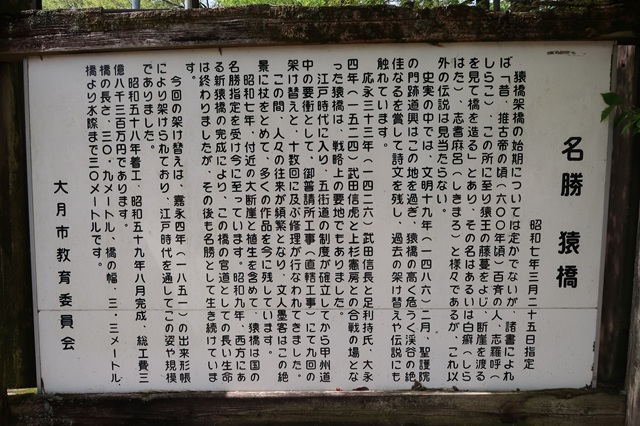 名勝 猿橋
昭和七年三月二十五日指定
猿橋架橋の始期については定かでないが、諸書によれ
ば「昔、推古帝の頃(六〇〇年頃)百済の人、志羅呼(
しらこ)、この所に至り猿王の藤蔓をよじ、断崖を渡る
を見て橋を造る」とあり、その名はあるいは白癬(しら
はた)、志耆麻呂(しきまろ)と様々であるが、これ以
外の伝説は見当たらない。
史実の中では、文明十九年(一四八六)二月、聖護院
の門跡道興はこの地を過ぎ、猿橋の高く危うく渓谷の絶
佳なるを賞して詩文を残し、過去の架け替えや伝説にも
触れています。
応永三十三年(一四二六)武田信長と足利持氏、大永
四年(一五二四)武田信虎と上杉憲房との合戦の場とな
った猿橋は、戦略上の要地でもありました。
江戸時代に入り、五街道の制度が確立してから甲州道
中の要衝として、御普請所工事(直轄工事)にて九回の
架け替えと、十数回に及ぶ修理が行なわれてきました。
この間、人々の往来が頻繁となり、文人墨客はこの絶
景に杖をとめて、多くの作品を今に残しています。
昭和七年、付近の大断崖と植生を含めて、猿橋は国の
名勝指定を受け今に至っています。昭和九年、西方にあ
る新猿橋の完成により、この橋の官道としての長い生命
は終わりましたが、その後も名勝として生き続けていま
す。
今回の架け替えは、嘉永四年(一八五一)の出来形帳
により架けられており、江戸時代を通してこの姿や規模
でありました。
昭和五十八年着工、昭和五十九年八月完成、総工費三
億八千三百万円であります。
橋の長さ、三〇.九メートル、橋の幅、三.三メートル
橋より水際まで三〇メートルです。
大月市教育委員会